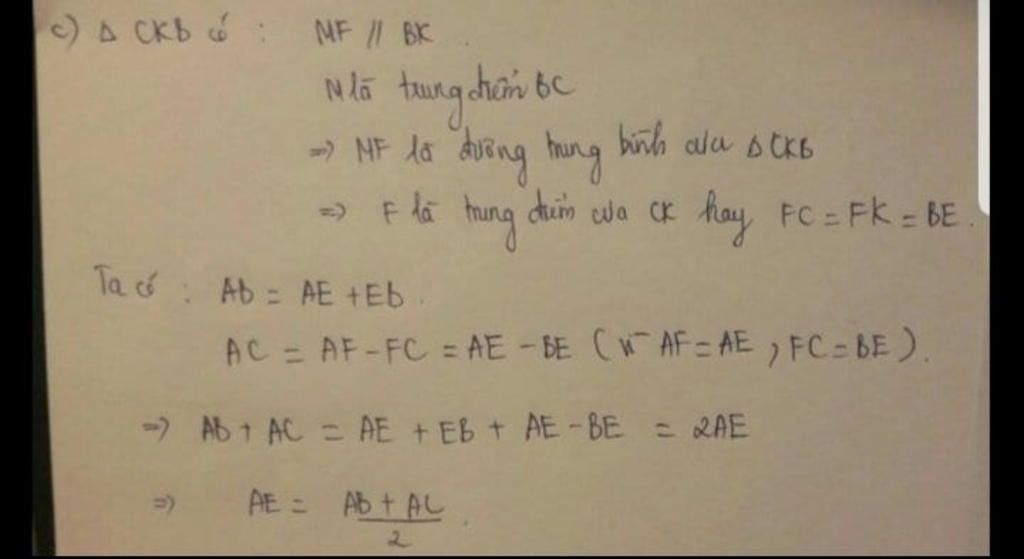 c) Δ CKB có : NF // BK .
N là trung điểm BC
=> NF là đường trung bình của Δ CKB
=> F là trung điểm của CK hay FC = FK = BE .
Ta có : Ab = AE + Eb .
AC = AF - FC = AE - BE ( vì AF = AE , FC = BE ) .
=> Ab + AC = AE + EB + AE - BE = 2AE
=> AE = Ab + AC / 2 .